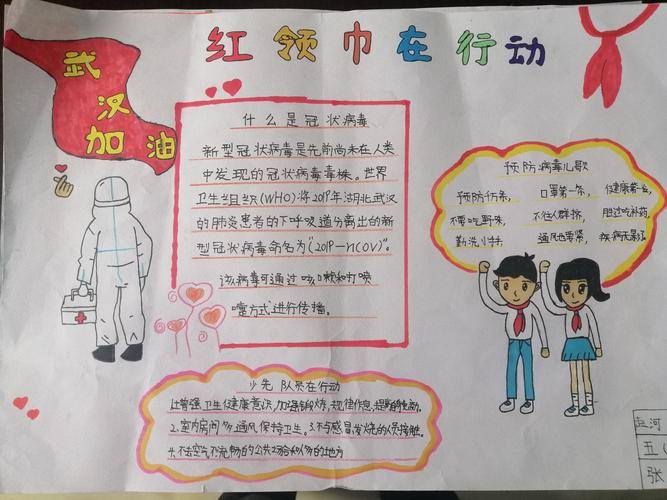 红领巾在行动
武
汉
加油
什么是冠状病毒
新型冠状病毒是先前尚未在人类
中发现的冠状病毒毒株。世界
卫生组织(WHO)将2019年湖北武汉
的肺炎患者的下呼吸道分离出的新
型冠状病毒命名为“(2019-nCOV)”。
该病毒可通过咳嗽和打喷
嚏方式进行传播。
预防病毒儿歌
预防传染, 口罩第一条, 健康第一
不要吃野味, 不往人群挤, 胜过吃补药,
勤洗小手 通风也要紧, 疾病无
少先队员在行动
1.增强卫生健康意识,加强锻炼,规律作息,提高
2.室内房间多通风,保持卫生。3.不与感冒,发烧的人员接触。
4.不去空气不流畅的公共场合和人多的地方
五
张